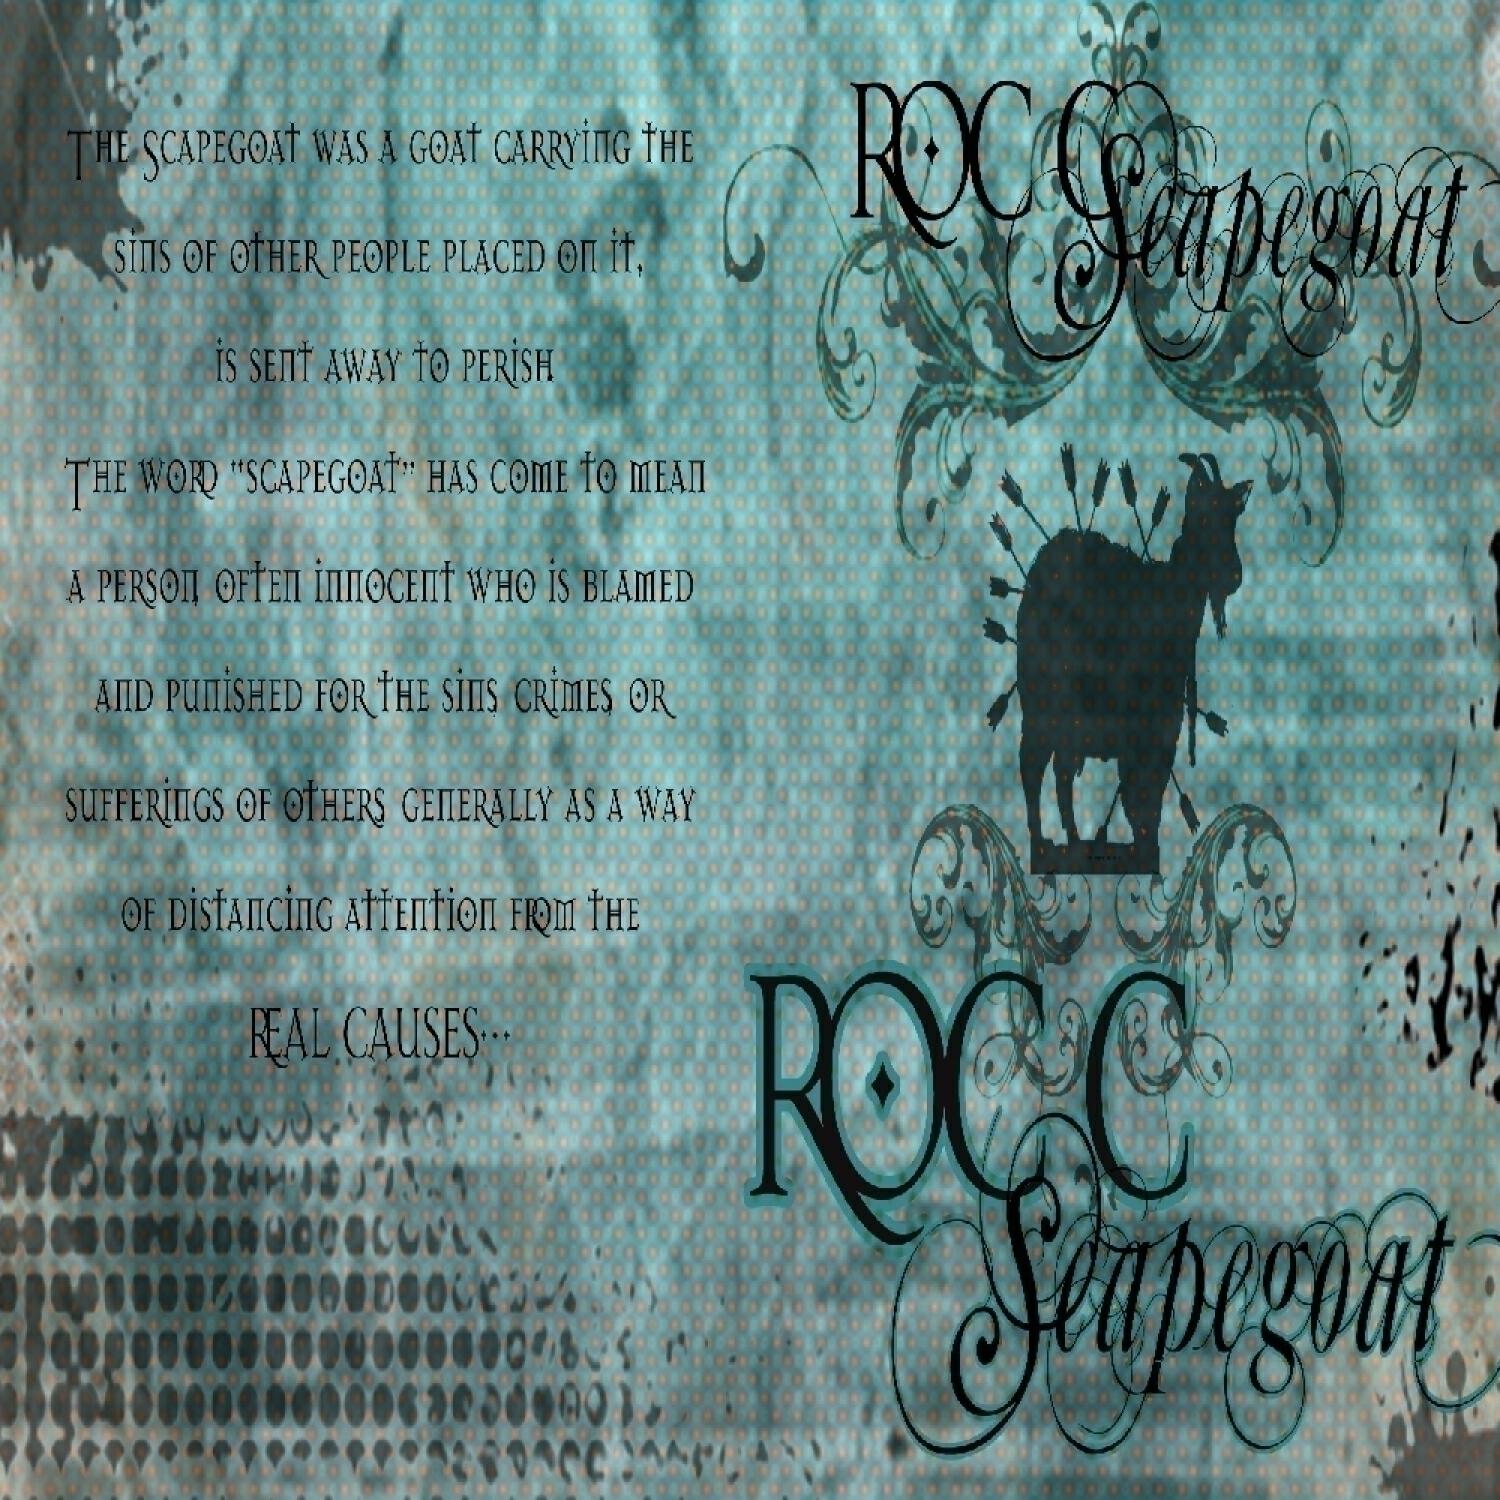 The Scapegoat was a goat carrying the
sins of other people placed on it,
is sent away to perish
The word "scapegoat" has come to mean
a person, often innocent who is blamed
and punished for the sins, crimes, or
sufferings of others, generally as a way
of distancing attention from the
real causes...
ROC C
Scapegoat
ROC C
Scapegoat